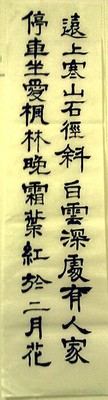 遠上寒山石徑斜白雲深處有人家
停車坐愛楓林晚霜葉紅於二月花